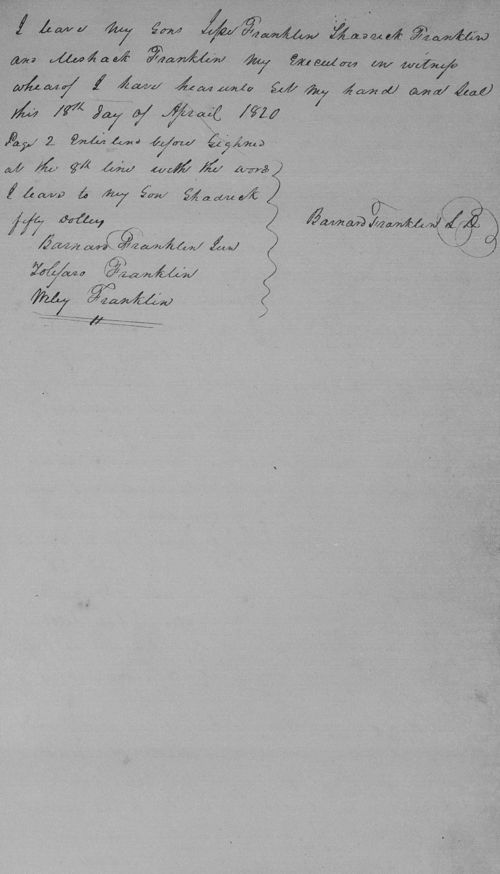 I leave my Sons Jesse Franklin Shadrick Franklin
and Meshack Franklin my Executors in witness
whearof I have hearunto Set my hand and Seal
this 18th day of Aprail 1820
Page 2 Enterlind before Sighned
at the 8th line with the word
I leave to my Son Shadrick
fifty Dollers
Barnard Franklin S.D.
Barnard Franklin Jun
Tolifaro Franklin
Wiley Franklin